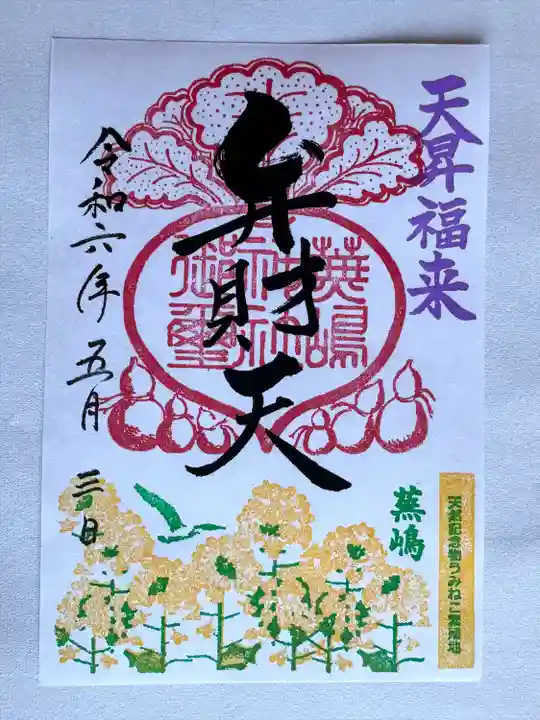 天昇福来
弁財天
蕪嶋
神社
御璽
令和六年五月三日
蕪嶋
天然記念物うみねこ繁殖地